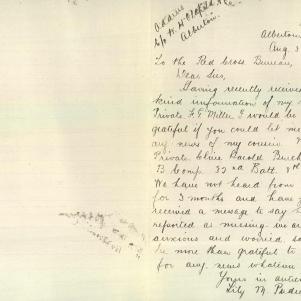 Address
c/o W. H. Oldfield
Alberton.
Alberton
Aug. 3
To the Red Cross Bureau,
Dear Sirs,
Having recently received
kind information of my
Private F. G. Miller I would be
grateful if you could let me
any news of my cousin
Private Clive Harold Burch
B Comp. 32nd Batt. 8th
We have not heard from
for 3 months and have
received a message to say h
reported as missing we are
anxious and worried so
be more than grateful to
for any news whatever
Yours in antici
Lily M.